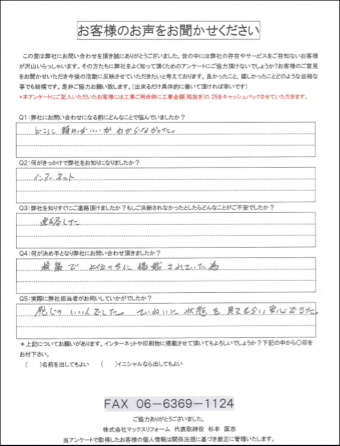 お客様のお声をお聞かせください
この度は弊社にお問い合わせを頂き誠にありがとうございました。世の中には弊社の存在やサービスをご存知ないお客様
が沢山いらっしゃいます。その方たちに弊社をよく知って頂くためのアンケートにご協力頂けないでしょうか？お客様のご意見
をお聞かせいただき今後の活動に反映させていただきたいと考えております。良かったこと、嬉しかったことどのような些細な
事でも結構です。是非ご協力お願い致します。（出来るだけ具体的に書いて頂ければ幸いです）
*本アンケートにご記入いただいたお客様には工事ご用命時に工事金額(税抜き)の2%をキャッシュバックさせていただきます。
Q1：弊社にお問い合わせになる前にどんなことで悩んでいましたか？
どこに頼めばいいかわからなかった。
Q2：何がきっかけで弊社をお知りになりましたか？
インターネット
Q3：弊社を知りすぐにご連絡頂けましたか？もしご決断されなかったとしたらどんなことがご不安でしたか？
連絡した
Q4：何が決め手となり弊社にお問い合わせ頂きましたか？
検索で上位の方に掲載されていた為
Q5：実際に弊社担当者がお伺いしていかがでしたか？
感じのいい人でした。ていねいに状態を見てもらい安心できた。
*上記についてお願いがあります。インターネットや印刷物に掲載させて頂いてもよろしいでしょうか？下記の中から○印を
お付下さい。
（　）名前を出してもよい　（　）イニシャルなら出してもよい
FAX 06-6369-1124
ご協力ありがとうございました。
株式会社マックスリフォーム 代表取締役 杉本 匡志
当アンケートで取得したお客様の個人情報は関係法規に基づき厳正に管理いたします。